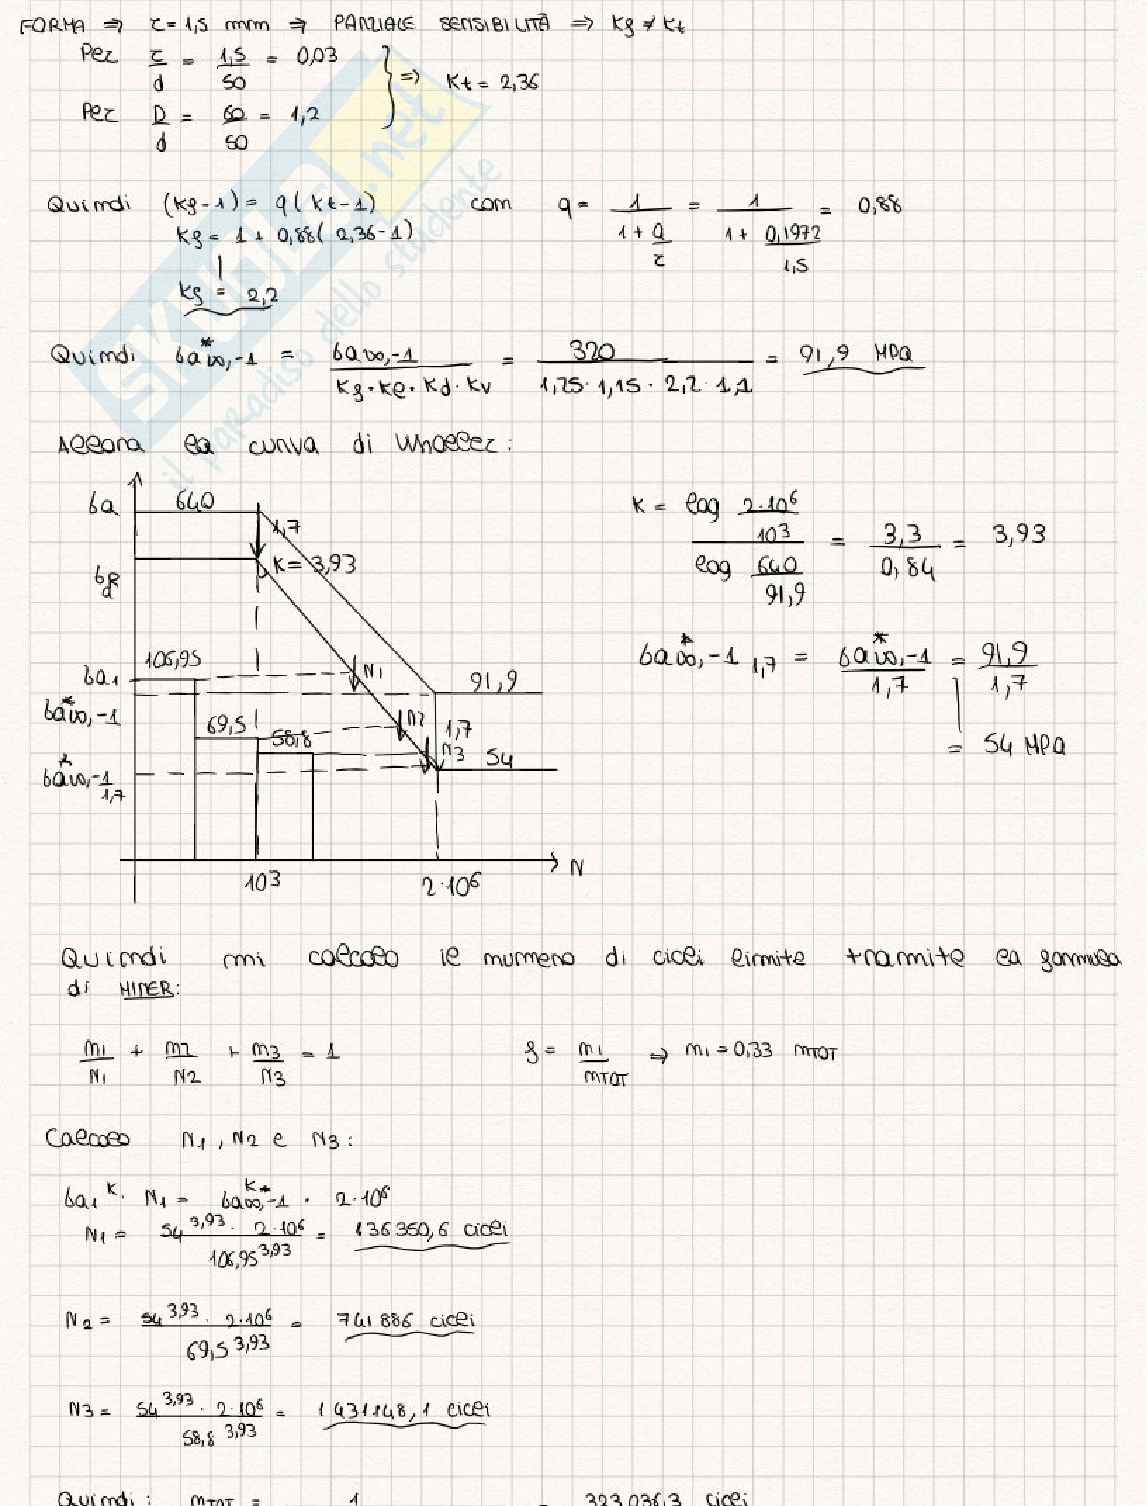 FORMA ⇒ r = 1,5 mm ⇒ PARZIALE SENSIBILITÀ ⇒ Kf ≠ Kt
Per r/d = 1,5/50 = 0,03
Per D/d = 60/50 = 1,2 } ⇒ Kt = 2,36
Quindi (Kf-1) = q(Kt-1) con q = 1/(1+a/r) = 1/(1+0,1972/1,5) = 0,88
Kf = 1 + 0,88(2,36-1)
Kf = 2,2
Quindi σa∞,-1* = σa∞,-1/(Kf·Kl·Kd·Kv) = 320/(1,25·1,15·2,2·1,1) = 91,9 MPa
Allora la curva di Whoeler:
σa 640
1,7
K = 3,93
σf
106,95
σa1
N1
91,9
σa∞,-1*
69,5
58,8
N2
1,7
N3
54
σa∞,-1* 1,7
10^3
2·10^6
N
K = log 2·10^6/10^3 / log 640/91,9 = 3,3/0,84 = 3,93
σa∞,-1* 1,7 = σa∞,-1*/1,7 = 91,9/1,7
= 54 MPa
Quindi mi calcolo il numero di cicli limite tramite la formula
di MINER:
n1/N1 + n2/N2 + n3/N3 = 1 f = ni/nTOT ⇒ ni = 0,33 nTOT
Calcolo N1, N2 e N3:
σa1^K · N1 = σa∞,-1^K* · 2·10^6
N1 = 54^3,93 · 2·10^6 / 106,95^3,93 = 136350,6 cicli
N2 = 54^3,93 · 2·10^6 / 69,5^3,93 = 741886 cicli
N3 = 54^3,93 · 2·10^6 / 58,8^3,93 = 1431148,1 cicli
Quindi: nTOT = 1 = 323036,3 cicli
SKUOLA.net
il paradiso dello studente